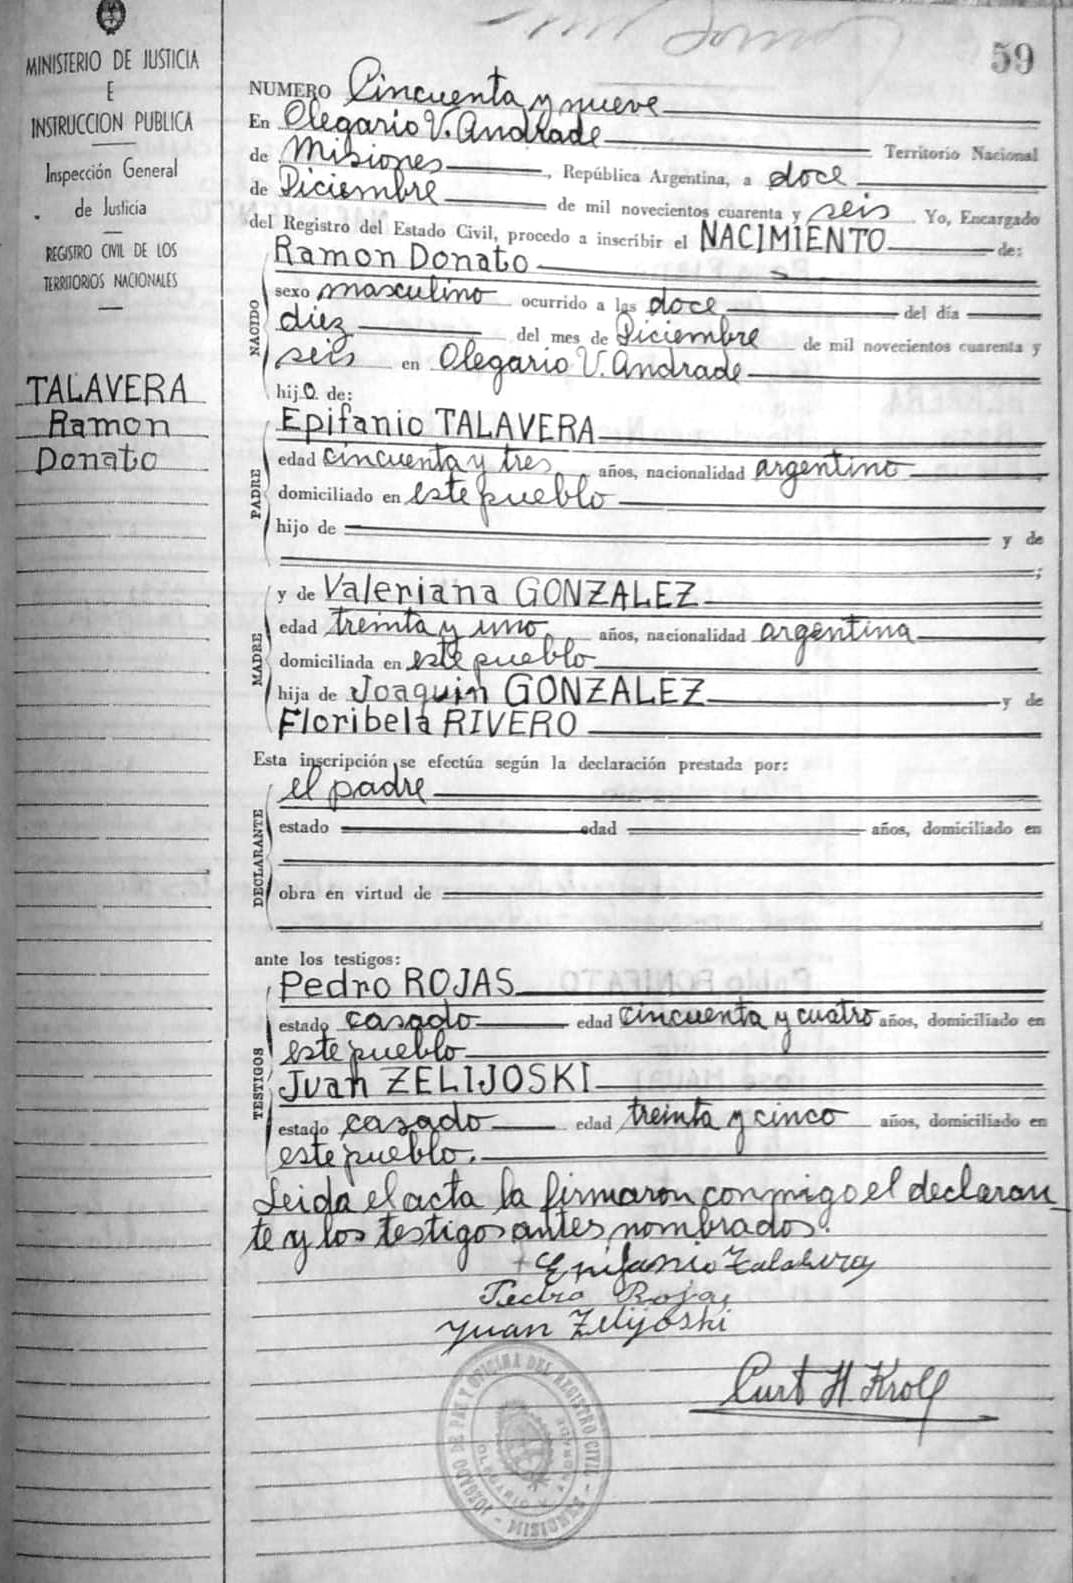 59
MINISTERIO DE JUSTICIA
E
INSTRUCCION PUBLICA
Inspección General
de Justicia
REGISTRO CIVIL DE LOS
TERRITORIOS NACIONALES
TALAVERA
Ramon
Donato
NUMERO Cincuenta y nueve
En Olegario V. Andrade Territorio Nacional
de Misiones, República Argentina, a doce
de Diciembre de mil novecientos cuarenta y seis Yo, Encargado
del Registro del Estado Civil, procedo a inscribir el NACIMIENTO de:
NACIDO
Ramon Donato
sexo masculino ocurrido a las doce del día
diez del mes de Diciembre de mil novecientos cuarenta y
seis en Olegario V. Andrade
hijo de:
PADRE
Epifanio TALAVERA
edad cincuenta y tres años, nacionalidad argentino
domiciliado en este pueblo
hijo de y de
;
MADRE
y de Valeriana GONZALEZ
edad treinta y uno años, nacionalidad argentina
domiciliada en este pueblo
hija de Joaquin GONZALEZ y de
Floribela RIVERO
Esta inscripción se efectúa según la declaración prestada por:
DECLARANTE
el padre
estado edad años, domiciliado en
obra en virtud de
ante los testigos:
TESTIGOS
Pedro ROJAS
estado casado edad cincuenta y cuatro años, domiciliado en
este pueblo
Juan ZELIJOSKI
estado casado edad treinta y cinco años, domiciliado en
este pueblo.
Leida el acta la firmaron conmigo el declaran
te y los testigos antes nombrados.
Epifanio Talabera
Pedro Rojas
Juan Zelijoski
Curt H. Kroll
JUZGADO DE PAZ Y OFICINA DEL REGISTRO CIVIL - MISIONES -
OLEGARIO V. ANDRADE